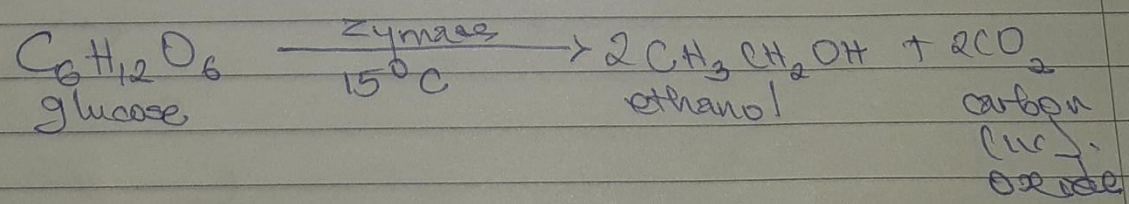 C₆H₁₂O₆ —zymase, 15⁰C→ 2CH₃CH₂OH + 2CO₂
glucose ethanol carbon
oxide